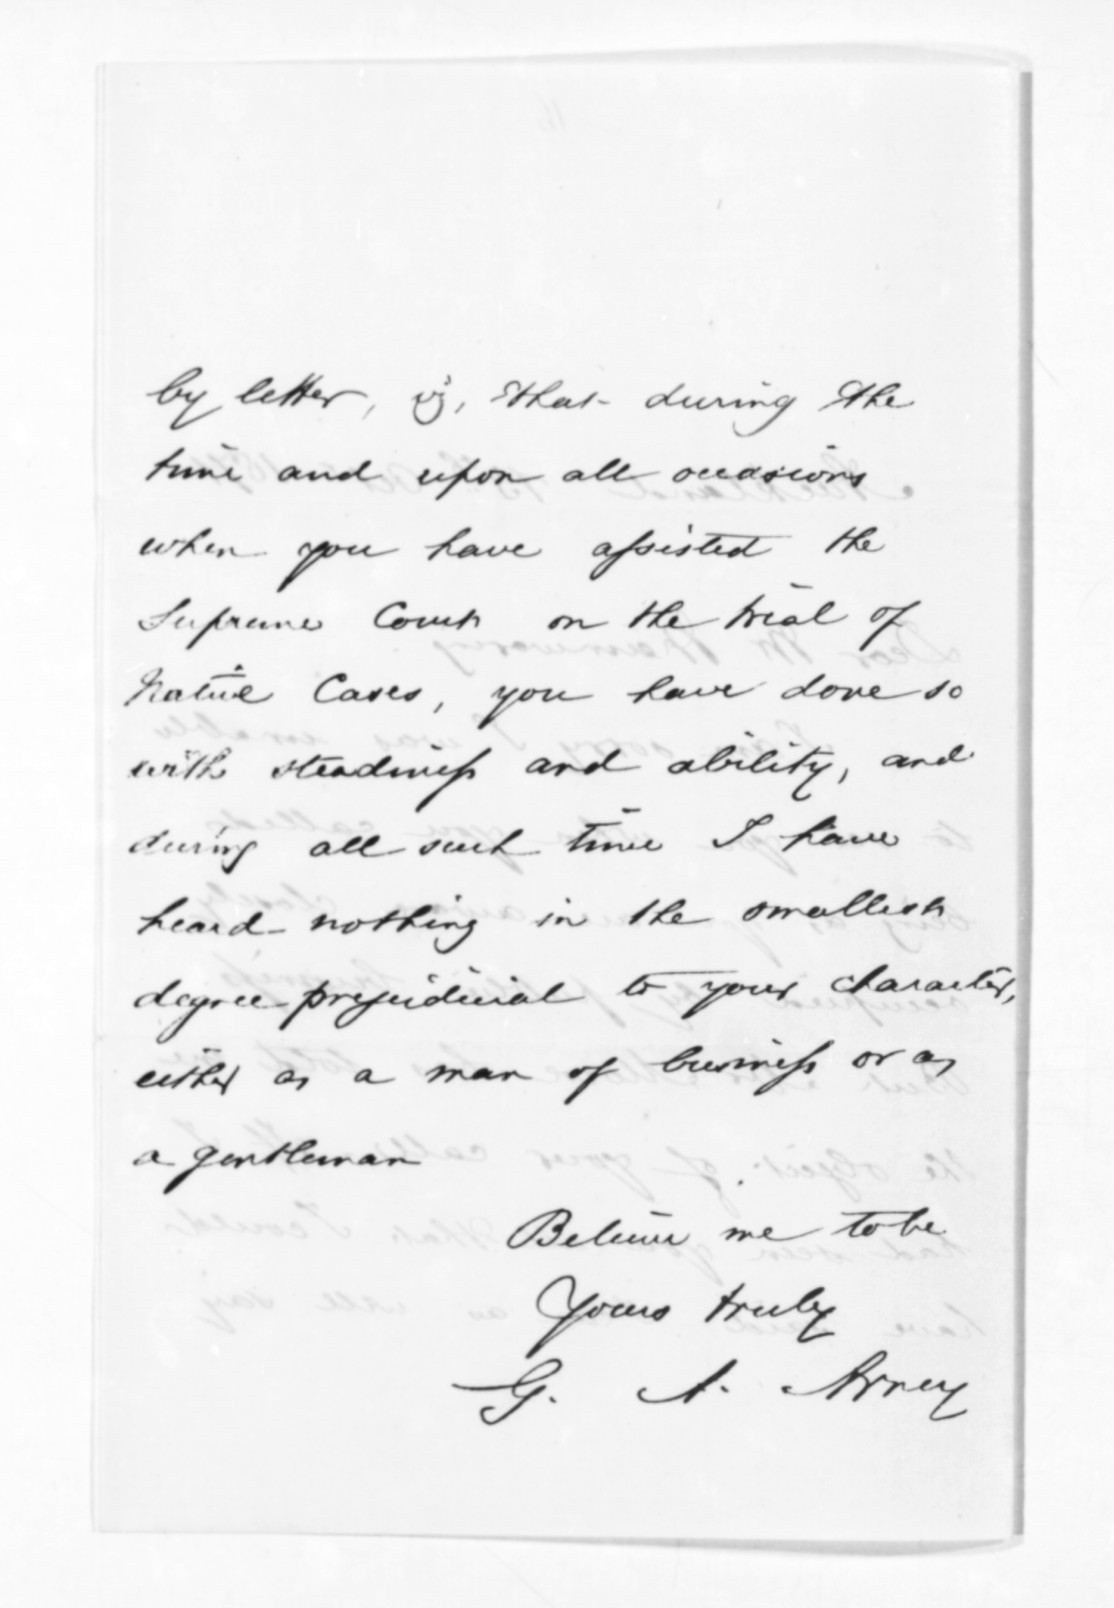 by letter, viz, that during the
time and upon all occasions
when you have assisted the
Supreme Court on the trial of
Native Cases, you have done so
with steadiness and ability, and
during all such time I have
heard nothing in the smallest
degree prejudicial to your character,
either as a man of business or as
a gentleman
Believe me to be
Yours truly
G. A. Arney